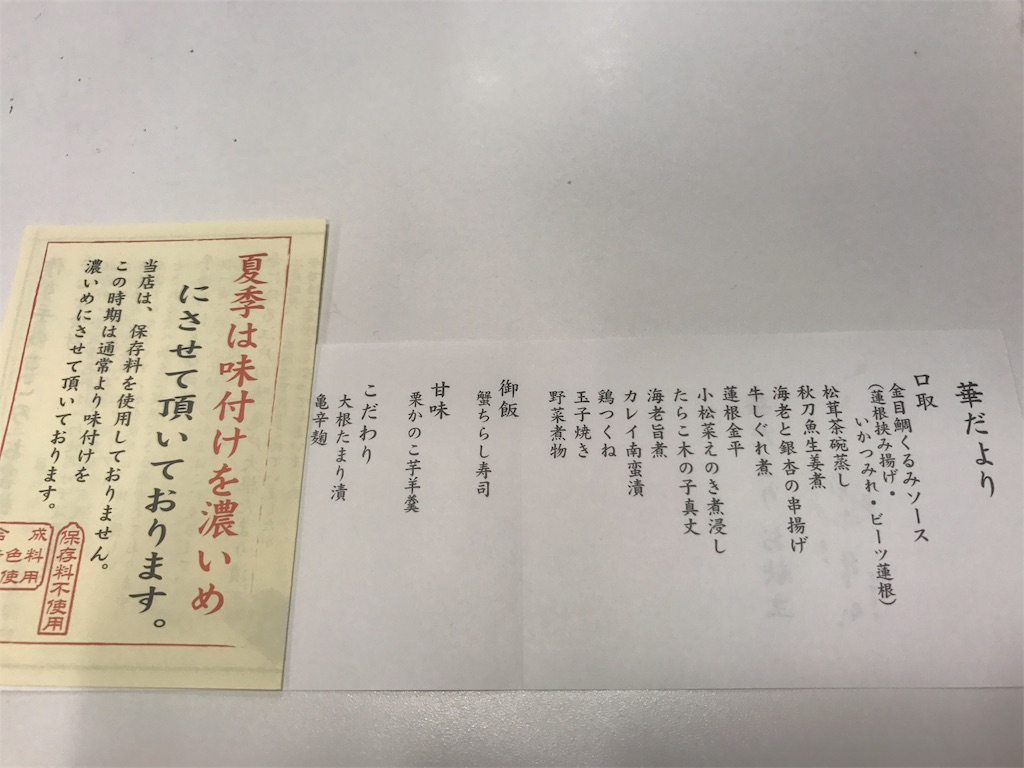 華だより
口取
金目鯛くるみソース
(蓮根挟み揚げ・
いかつみれ・ビーツ蓮根)
松茸茶碗蒸し
秋刀魚生姜煮
海老と銀杏の串揚げ
牛しぐれ煮
蓮根金平
小松菜えのき煮浸し
たらこ木の子真丈
海老旨煮
カレイ南蛮漬
鶏つくね
玉子焼き
野菜煮物
御飯
蟹ちらし寿司
甘味
栗かのこ芋羊羹
こだわり
大根たまり漬
亀辛麹
夏季は味付けを濃いめ
にさせて頂いております。
当店は、保存料を使用しておりません。
この時期は通常より味付けを
濃いめにさせて頂いております。
保存料不使用
成料用
色使